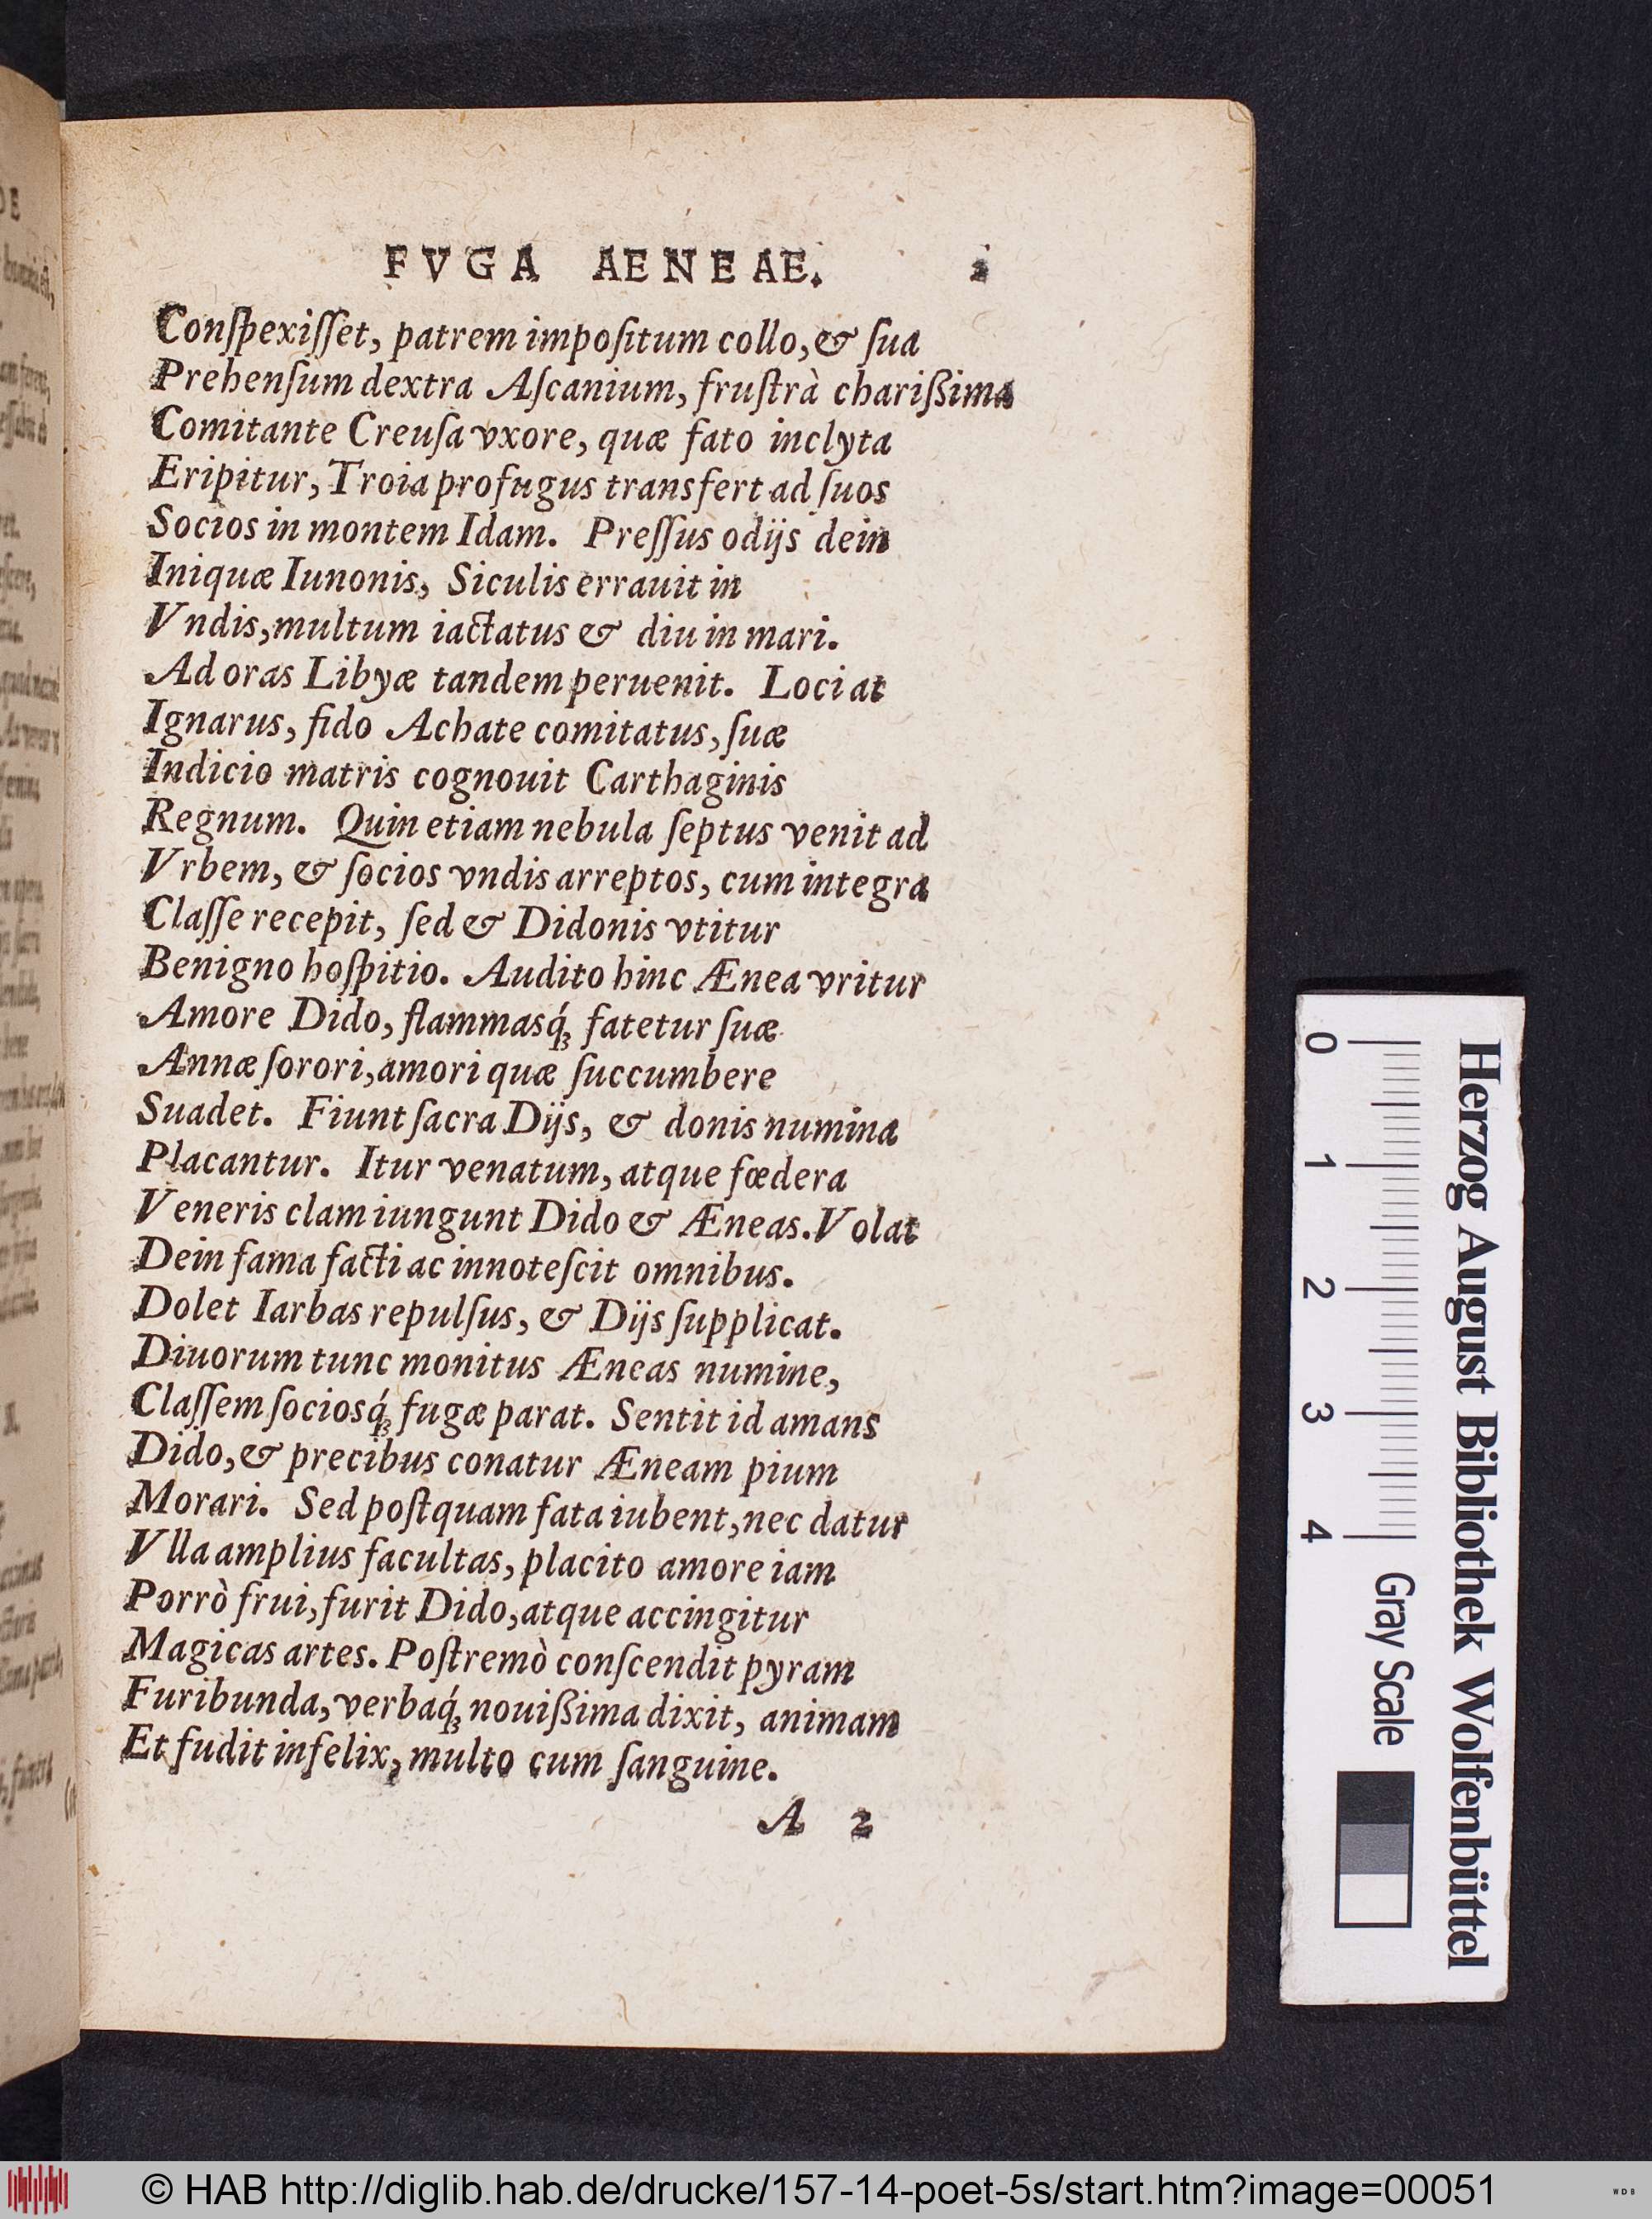 FVGA AENEAE. 2
Conſpexiſſet, patrem impoſitum collo, & ſua
Prehenſum dextra Aſcanium, fruſtrà charißima
Comitante Creuſa vxore, quæ fato inclyta
Eripitur, Troia profugus transfert ad ſuos
Socios in montem Idam. Preſſus odijs dein
Iniquæ Iunonis, Siculis errauit in
Vndis, multum iactatus & diu in mari.
Ad oras Libyæ tandem peruenit. Loci at
Ignarus, fido Achate comitatus, ſuæ
Indicio matris cognouit Carthaginis
Regnum. Quin etiam nebula ſeptus venit ad
Vrbem, & ſocios vndis arreptos, cum integra
Claſſe recepit, ſed & Didonis vtitur
Benigno hoſpitio. Audito hinc Ænea vritur
Amore Dido, flammasq́ꝫ fatetur ſuæ
Annæ ſorori, amori quæ ſuccumbere
Suadet. Fiunt ſacra Dijs, & donis numina
Placantur. Itur venatum, atque fœdera
Veneris clam iungunt Dido & Æneas. Volat
Dein fama facti ac innoteſcit omnibus.
Dolet Iarbas repulſus, & Dijs ſupplicat.
Diuorum tunc monitus Æneas numine,
Claſſem ſociosq́ꝫ fugæ parat. Sentit id amans
Dido, & precibus conatur Æneam pium
Morari. Sed poſtquam fata iubent, nec datur
Vlla amplius facultas, placito amore iam
Porrò frui, furit Dido, atque accingitur
Magicas artes. Poſtremò conſcendit pyram
Furibunda, verbaq́ꝫ nouißima dixit, animam
Et fudit infelix, multo cum ſanguine.
A 2
Herzog August Bibliothek Wolfenbüttel
0 1 2 3 4 Gray Scale
© HAB http://diglib.hab.de/drucke/157-14-poet-5s/start.htm?image=00051
WDB